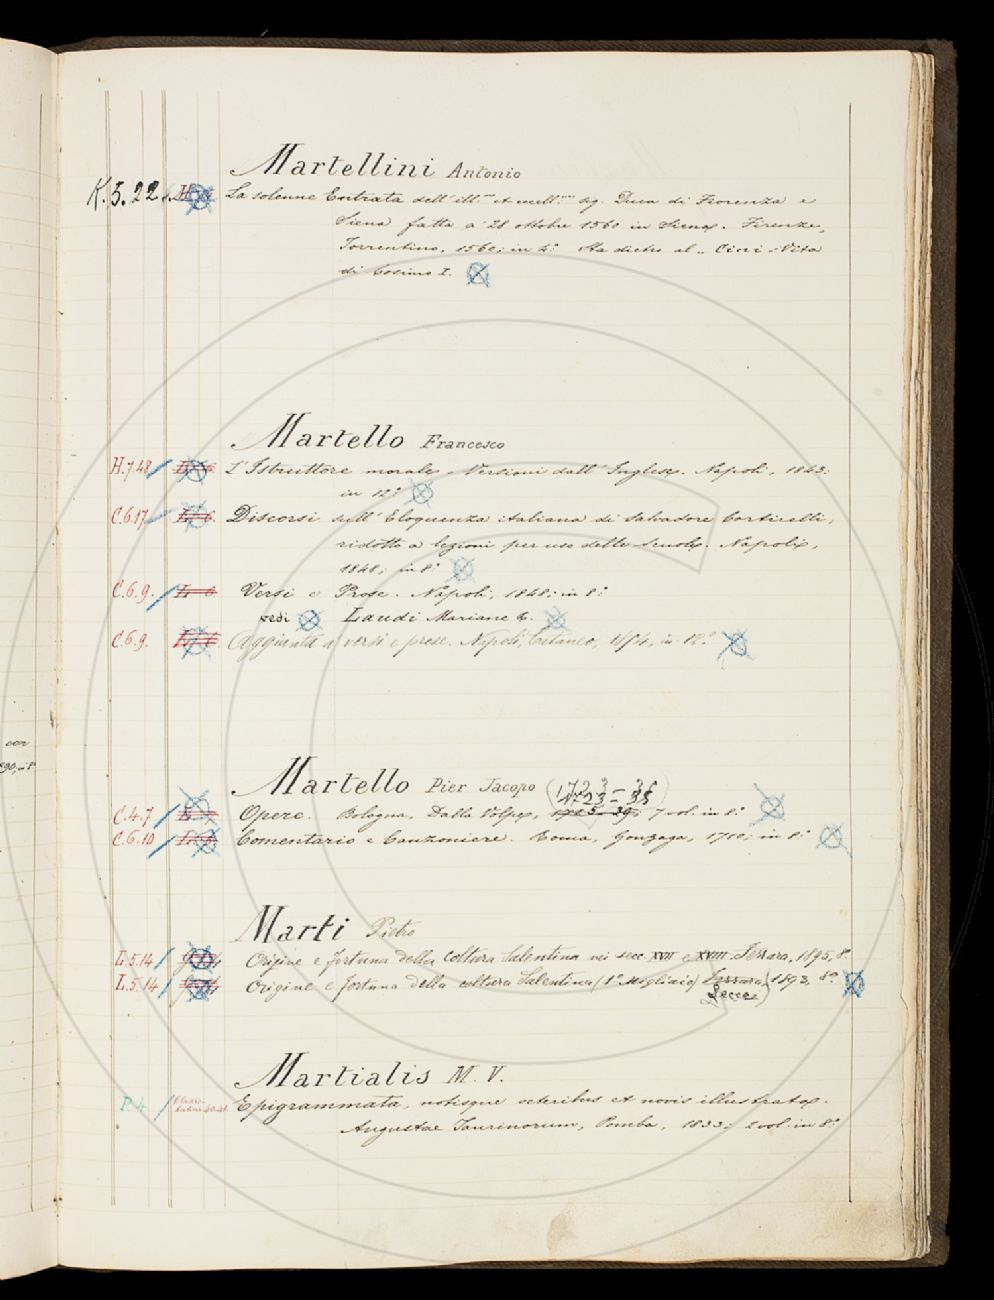 Martellini Antonio
K.5.22 La solenne Entrata dell'ill.mo et eccell.mo sig. Duca di Fiorenza e
Siena fatta a' 28 ottobre 1560 in Siena. Firenze,
Torrentino, 1560; in 4.° Sta dietro al „ Cini - Vita
di Cosimo I.
Martello Francesco
H.7.48 L'Istruttore morale. Versioni dall'Inglese. Napoli, 1843;
in 12.°
C.6.17 Discorsi sull'Eloquenza italiana di Salvadore Corticelli,
ridotto a lezioni per uso delle scuole. Napoli,
1848; in 8.°
C.6.9. Versi e Prose. Napoli, 1848; in 8.°
vedi Laudi Mariane
C.6.9. Aggiunta a versi e prose. Napoli, Cutaneo, in 12.°
Martello Pier Jacopo (1723-35
1723-35)
C.4.7 Opere. Bologna, Dalla Volpe, 7 vol. in 8.°
C.6.10 Comentario e Canzoniere. Roma, Gonzaga, 1710; in 8.°
Marti Pietro
L.5.14 Origine e fortuna della coltura Salentina nei sec. XVII e XVIII. Ferrara, 1895, 8.°
L.5.14 Origine e fortuna della coltura Salentina (1.° Migliaio) Ferrara 1893, 8.°
Lecce)
Martialis M. V.
P.4 Epigrammata, notisque veteribus et novis illustrata.
Augustae Taurinorum, Pomba, 1833; 2 vol. in 8.°